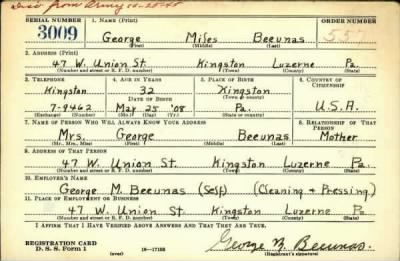 Disc from Army 10-25-45
SERIAL NUMBER 1. Name (Print) ORDER NUMBER
3009 George Miles Beeunas 557
(First) (Middle) (Last)
2. Address (Print)
47 W. Union St. Kingston Luzerne Pa.
(Number and street or R. F. D. number) (Town) (County) (State)
3. Telephone 4. Age in Years 5. Place of Birth 6. Country of Citizenship
Kingston 32 Kingston
Date of Birth (Town or county)
7-9462 Mar 25 '08 Pa. U.S.A.
(Exchange) (Number) (Mo.) (Day) (Yr.) (State or country)
7. Name of Person Who Will Always Know Your Address 8. Relationship of That Person
Mrs. George Beeunas Mother
(Mr., Mrs., Miss) (First) (Middle) (Last)
9. Address of That Person
47 W. Union St. Kingston Luzerne Pa.
(Number and street or R. F. D. number) (Town) (County) (State)
10. Employer's Name
George M. Beeunas (Self) (Cleaning + Pressing)
11. Place of Employment or Business
47 W. Union St Kingston Luzerne Pa
(Number and street or R. F. D. number) (Town) (County) (State)
I Affirm That I Have Verified Above Answers and That They Are True.
REGISTRATION CARD
D. S. S. Form 1 (over) 16—17105 George M. Beeunas
(Registrant's signature)